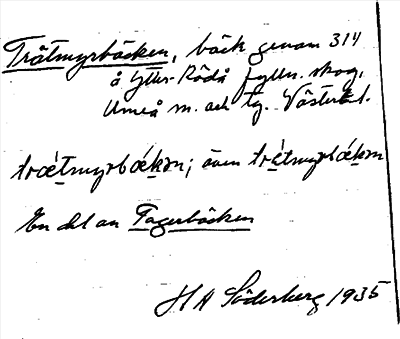 Trätmyrbäcken, bäck genom 314
å Ytter-Rödå fylln. skog,
Umeå sn. och tg. Västerb.l.
trætmyrbækən; även trætmyrbækən
En del av Fagerbäcken
H A Söderberg 1935